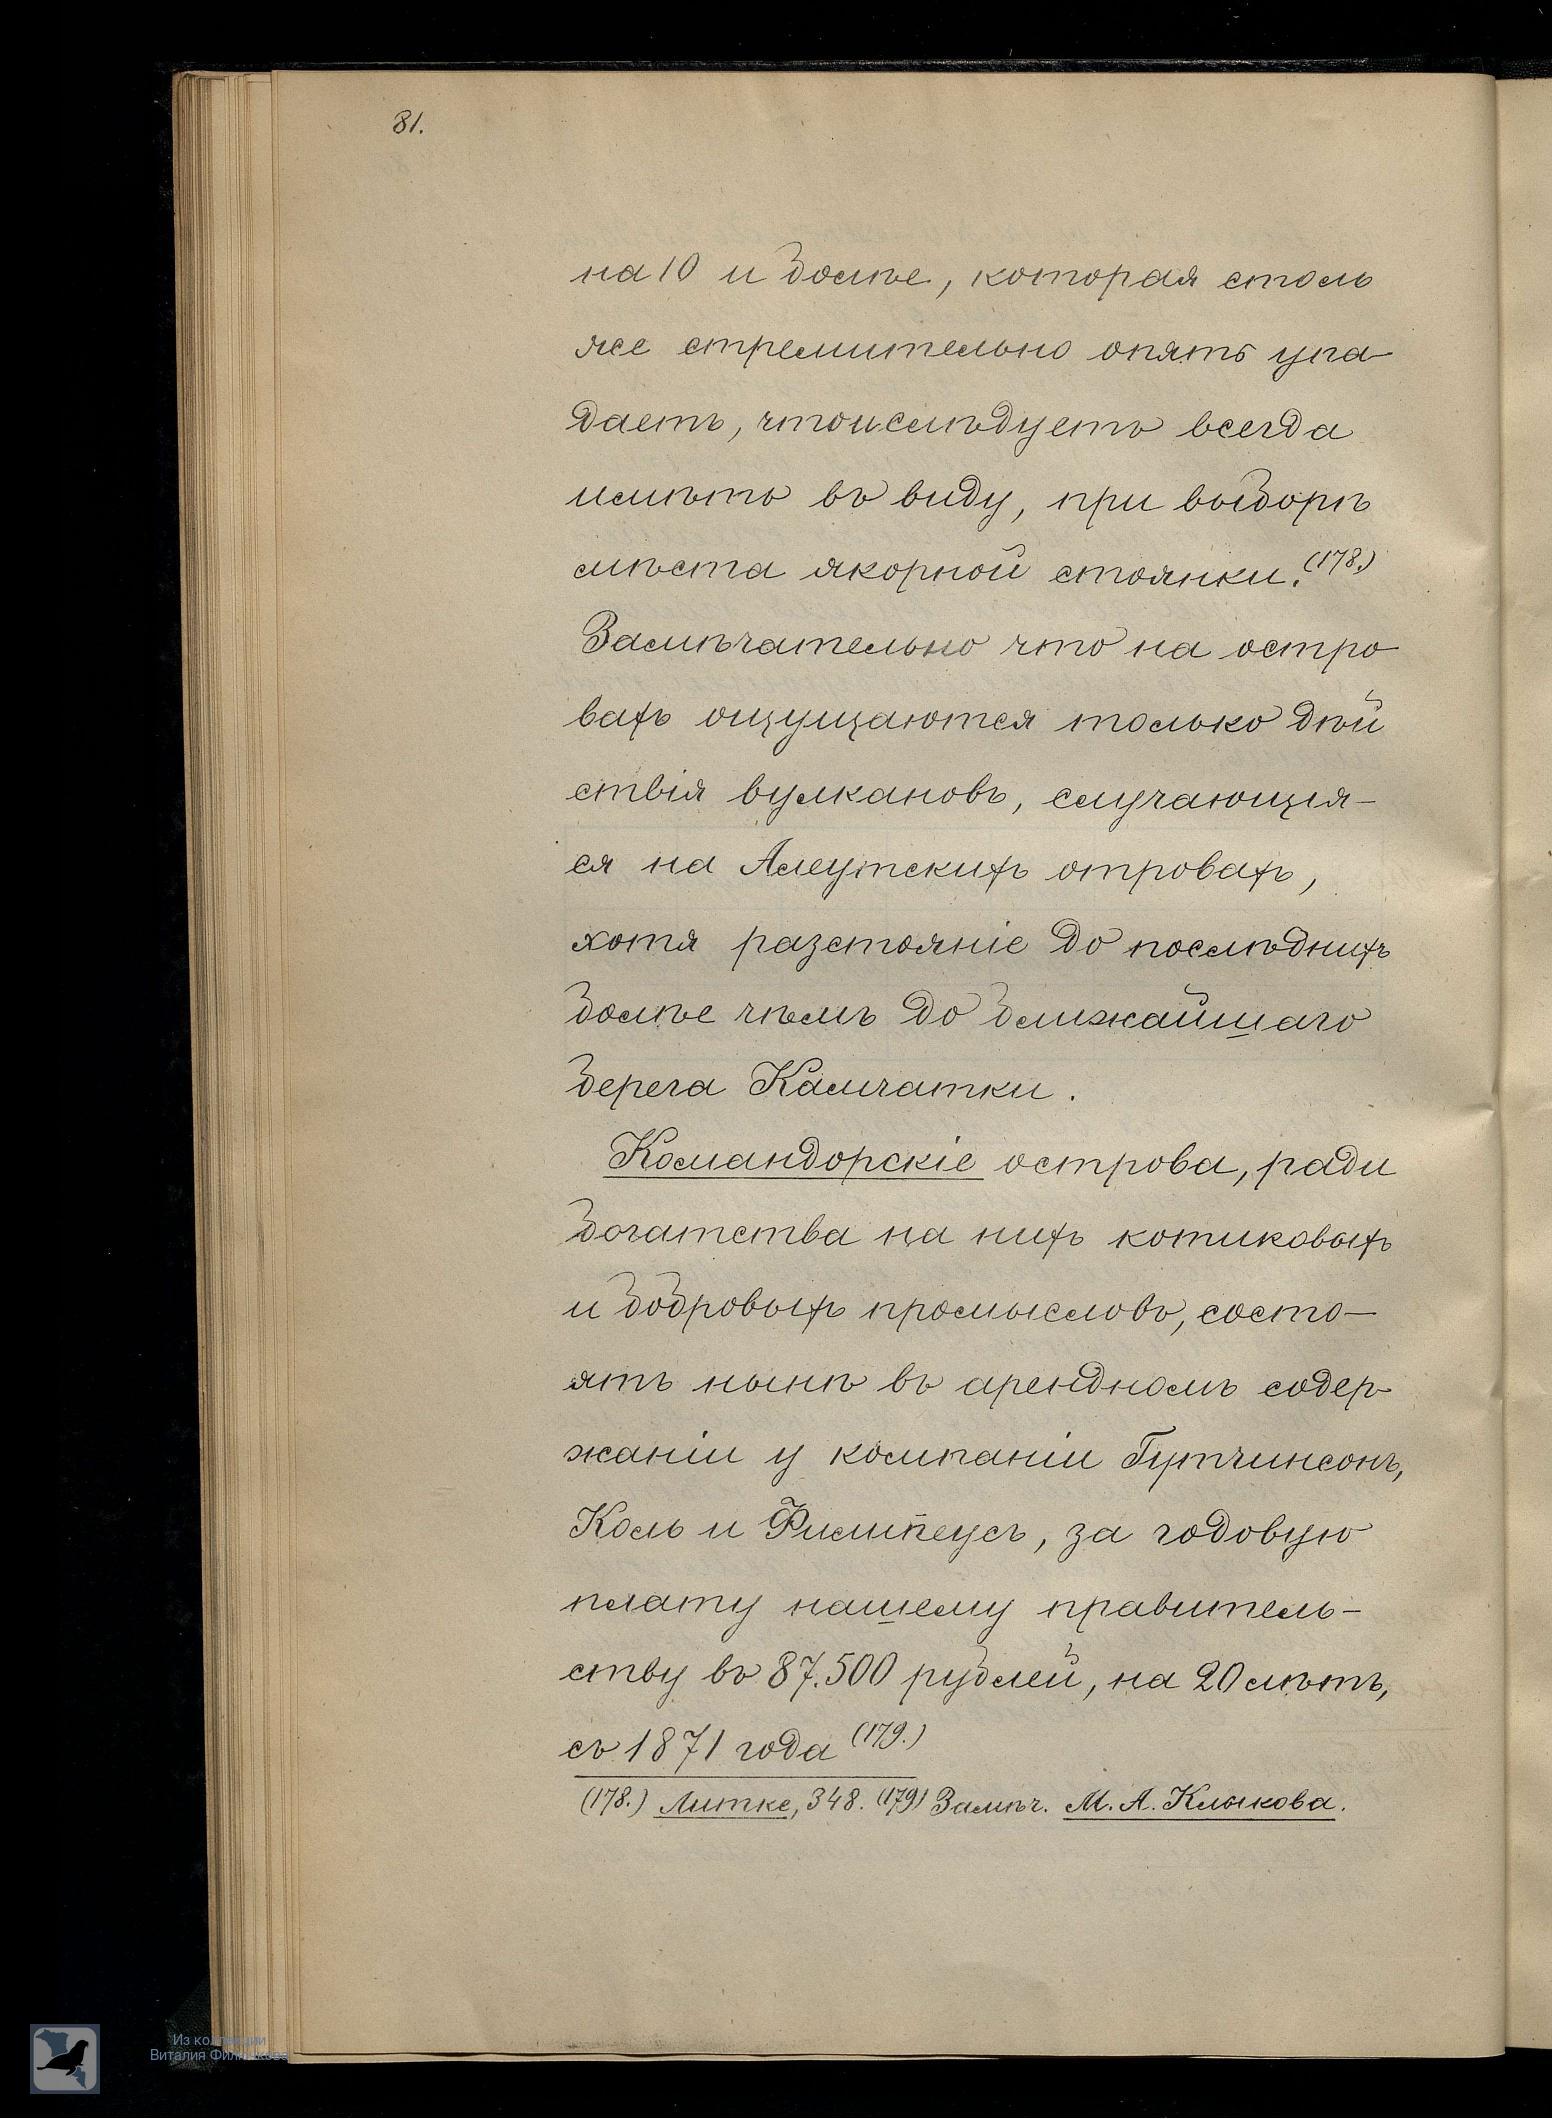 81.
на 10 и болѣе, которая столь
же стремительно опять упа-
даетъ, что и слѣдуетъ всегда
имѣть въ виду, при выборѣ
мѣста якорной стоянки. (178.)
Замѣчательно что на остро
вахъ ощущаются только дѣй
ствія вулкановъ, случающія-
ся на Алеутскихъ отровахъ,
хотя разстояніе до послѣднихъ
болѣе чѣмъ до ближайшаго
берега Камчатки.
Командорскіе острова, ради
богатства на нихъ котиковыхъ
и бобровыхъ промысловъ, состо-
ятъ нынѣ въ арендномъ содер-
жаніи у компаніи Гутчинсонъ,
Коль и Филипеусъ, за годовую
плату нашему правитель-
ству въ 87.500 рублей, на 20 лѣтъ,
съ 1871 года (179.)
(178.) Литке, 348. (179) Замѣч. М. А. Клыкова.
Из коллекции
Виталия Филиппова